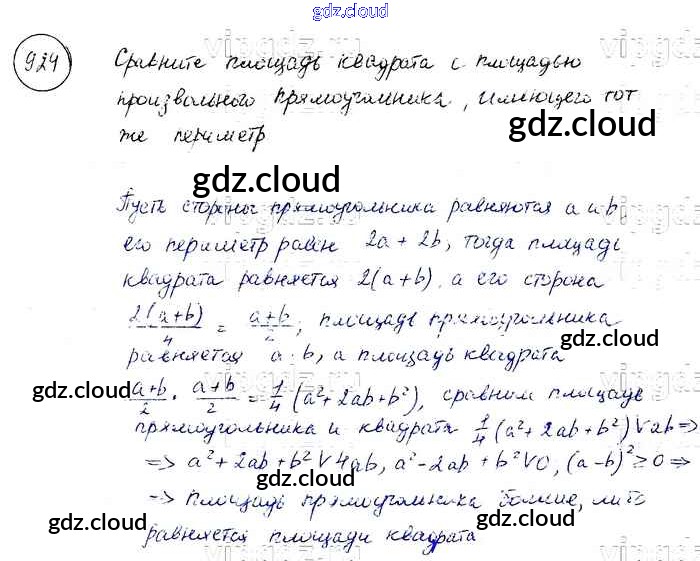 gdz.cloud
924
Сравните площадь квадрата с площадью
произвольного прямоугольника, имеющего тот
же периметр
gdz.cloud
gdz.cloud
Пусть стороны прямоугольника равняются a и b,
его периметр равен 2a + 2b, тогда площадь
квадрата равняется 2(a+b), а его сторона
2(a+b)/4 = a+b/2; площадь прямоугольника
равняется a·b, а площадь квадрата
gdz.cloud
gdz.cloud
a+b/2 · a+b/2 = 1/4 (a²+2ab+b²), сравним площадь
прямоугольника и квадрата 1/4 (a²+2ab+b²) V ab =>
=> a²+2ab+b² V 4ab, a²-2ab+b² V 0, (a-b)² ≥ 0 =>
-> площадь прямоугольника больше, либо
gdz.cloud
gdz.cloud
равняется площади квадрата